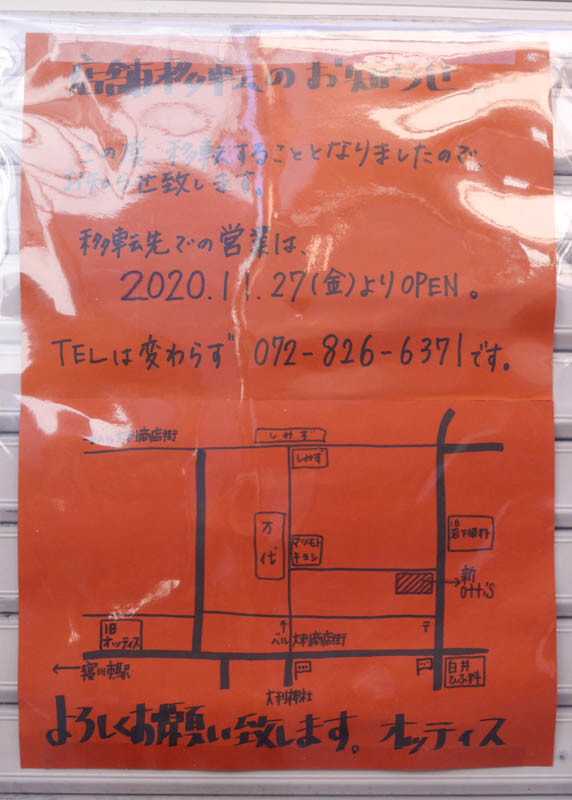 店舗移転のお知らせ
この度 移転することとなりましたので、
お知らせ致します。
移転先での営業は、
2020.11.27(金)よりOPEN。
TELは変わらず 072-826-6371です。
大利商店街
しみず
しみず
万代
マツモト
キヨシ
旧
岩下歯科
新
Otti's
旧
オッティス
↑
ベル大利商店街
〒
←
寝川市駅
大利神社
白井
ひふ科
よろしくお願い致します。オッティス